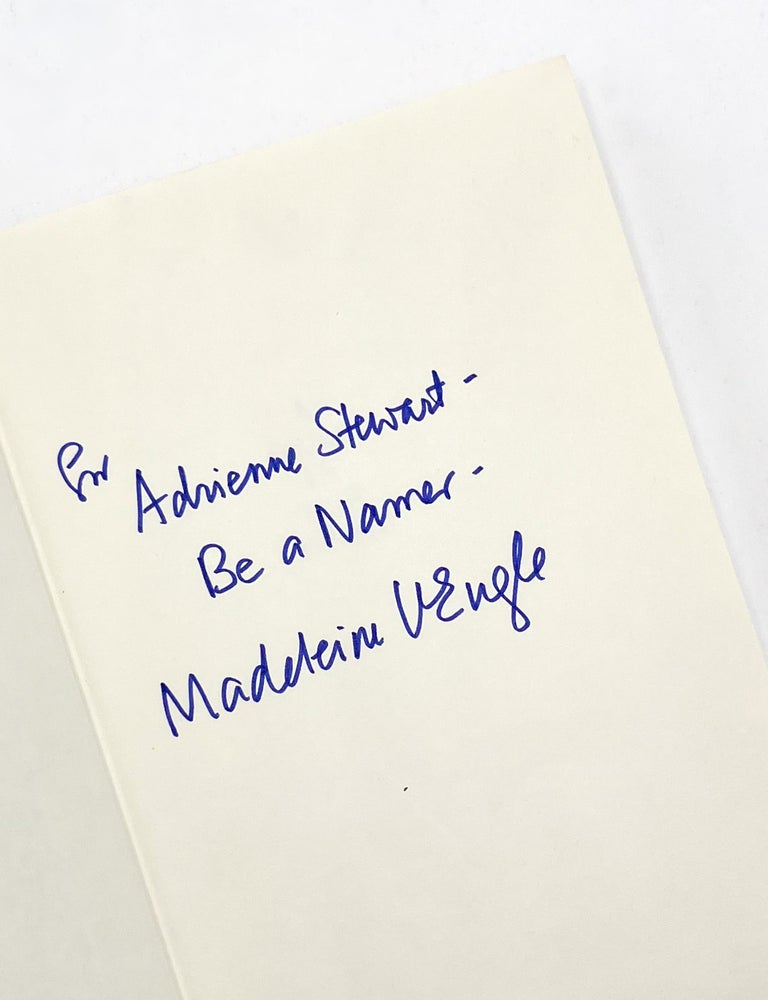 For Adrienne Stewart -
Be a Namer -
Madeleine L'Engle